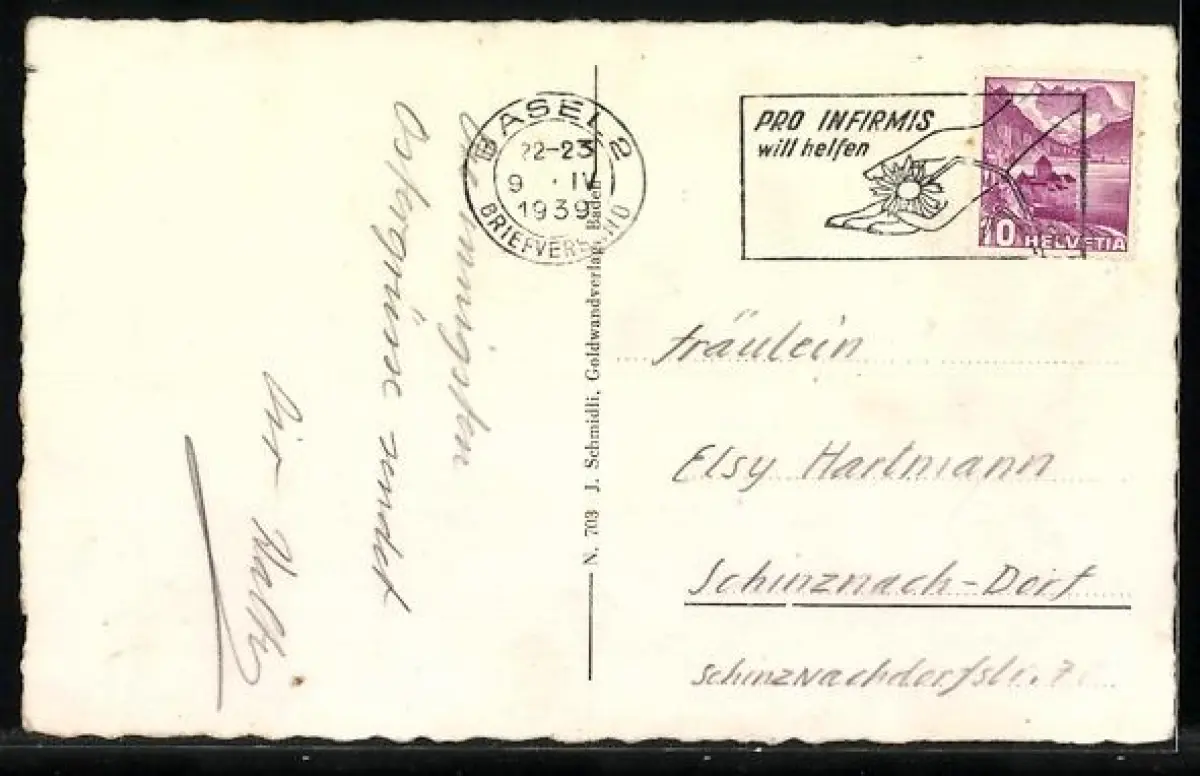 Die innigsten
Ostergrüsse sendet
Dir Walti
BASEL 2
22-23
9. IV
1939
BRIEFVERSAND
N. 703 J. Schmidli, Goldwandverlag, Baden
PRO INFIRMIS
will helfen
10 HELVETIA
Fräulein
Elsy Hartmann
Schinznach-Dorf
Schinznachdorfstr.